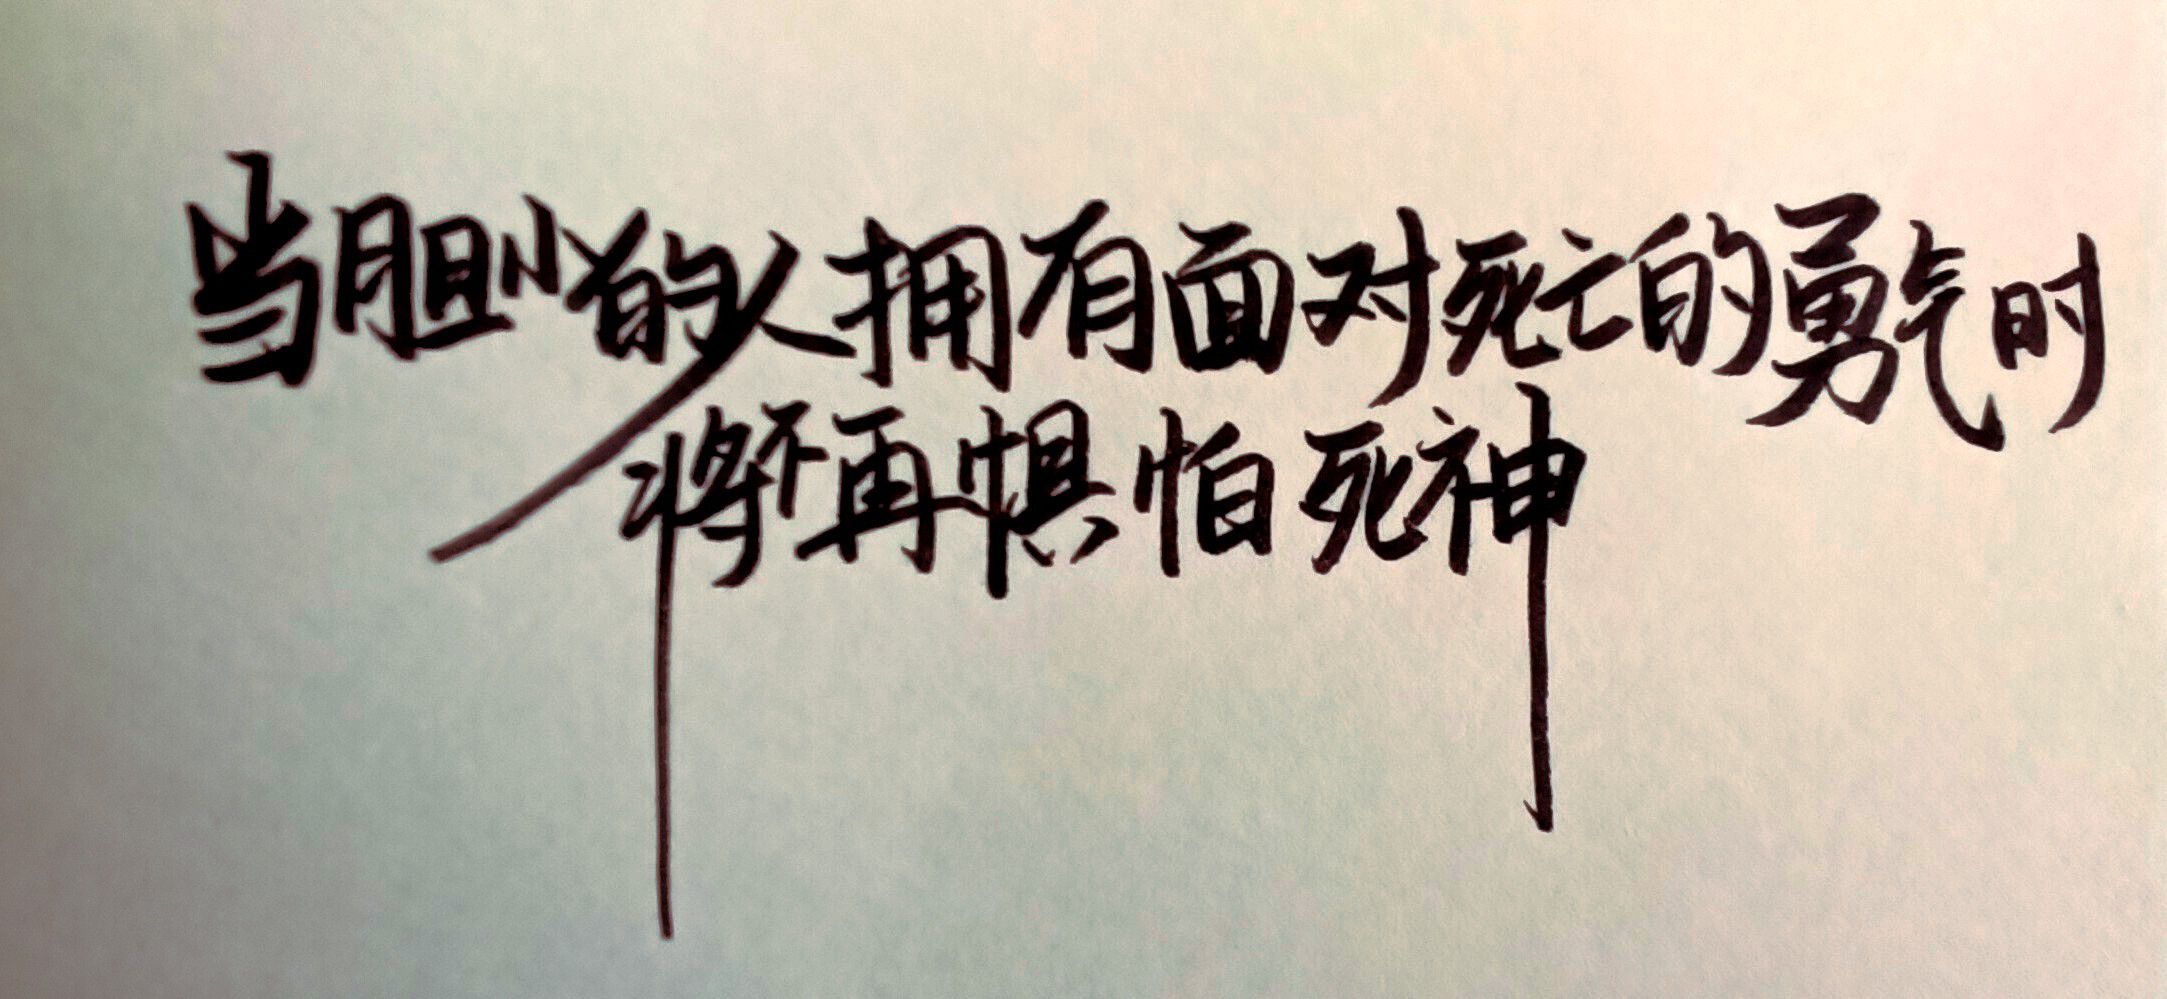 当胆小的人拥有面对死亡的勇气时
将不再惧怕死神